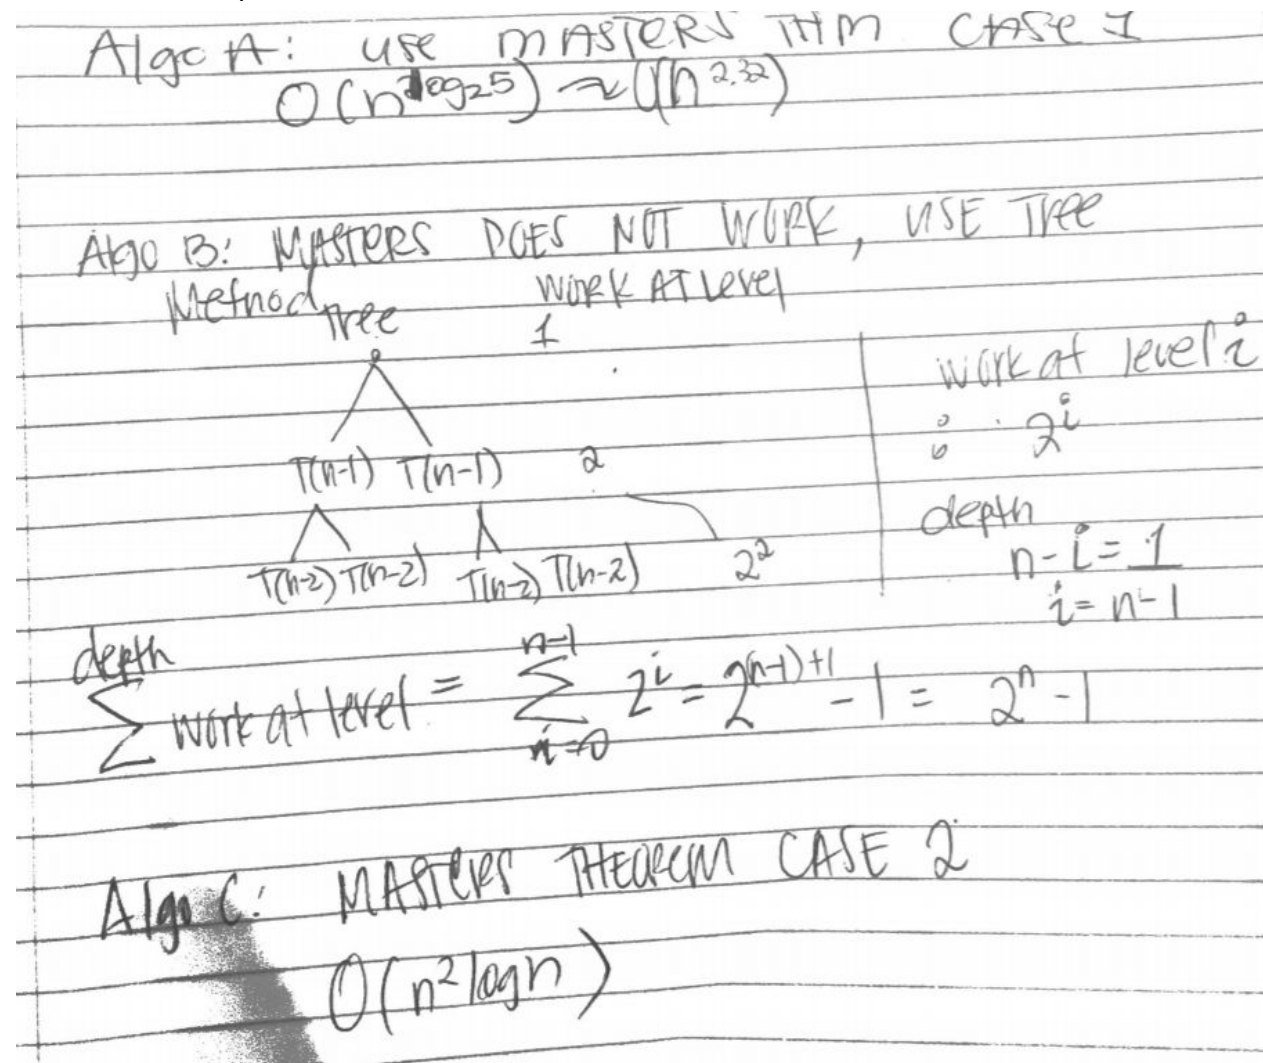 Algo A: use MASTERS THM CASE 1
O(n^log₂5) ≈ O(n^2.32)
Algo B: MASTERS DOES NOT WORK, USE Tree
Method
Tree
work AT Level
1
T(n-1) T(n-1) 2
T(n-2) T(n-2) T(n-2) T(n-2) 2²
work at level i
: 2^i
depth
n-i=1
i=n-1
depth
∑ work at level = ∑ n-1 i=0 2^i = 2^(n-1)+1 - 1 = 2^n - 1
Algo C: MASTERS THEOREM CASE 2
O(n² log n)